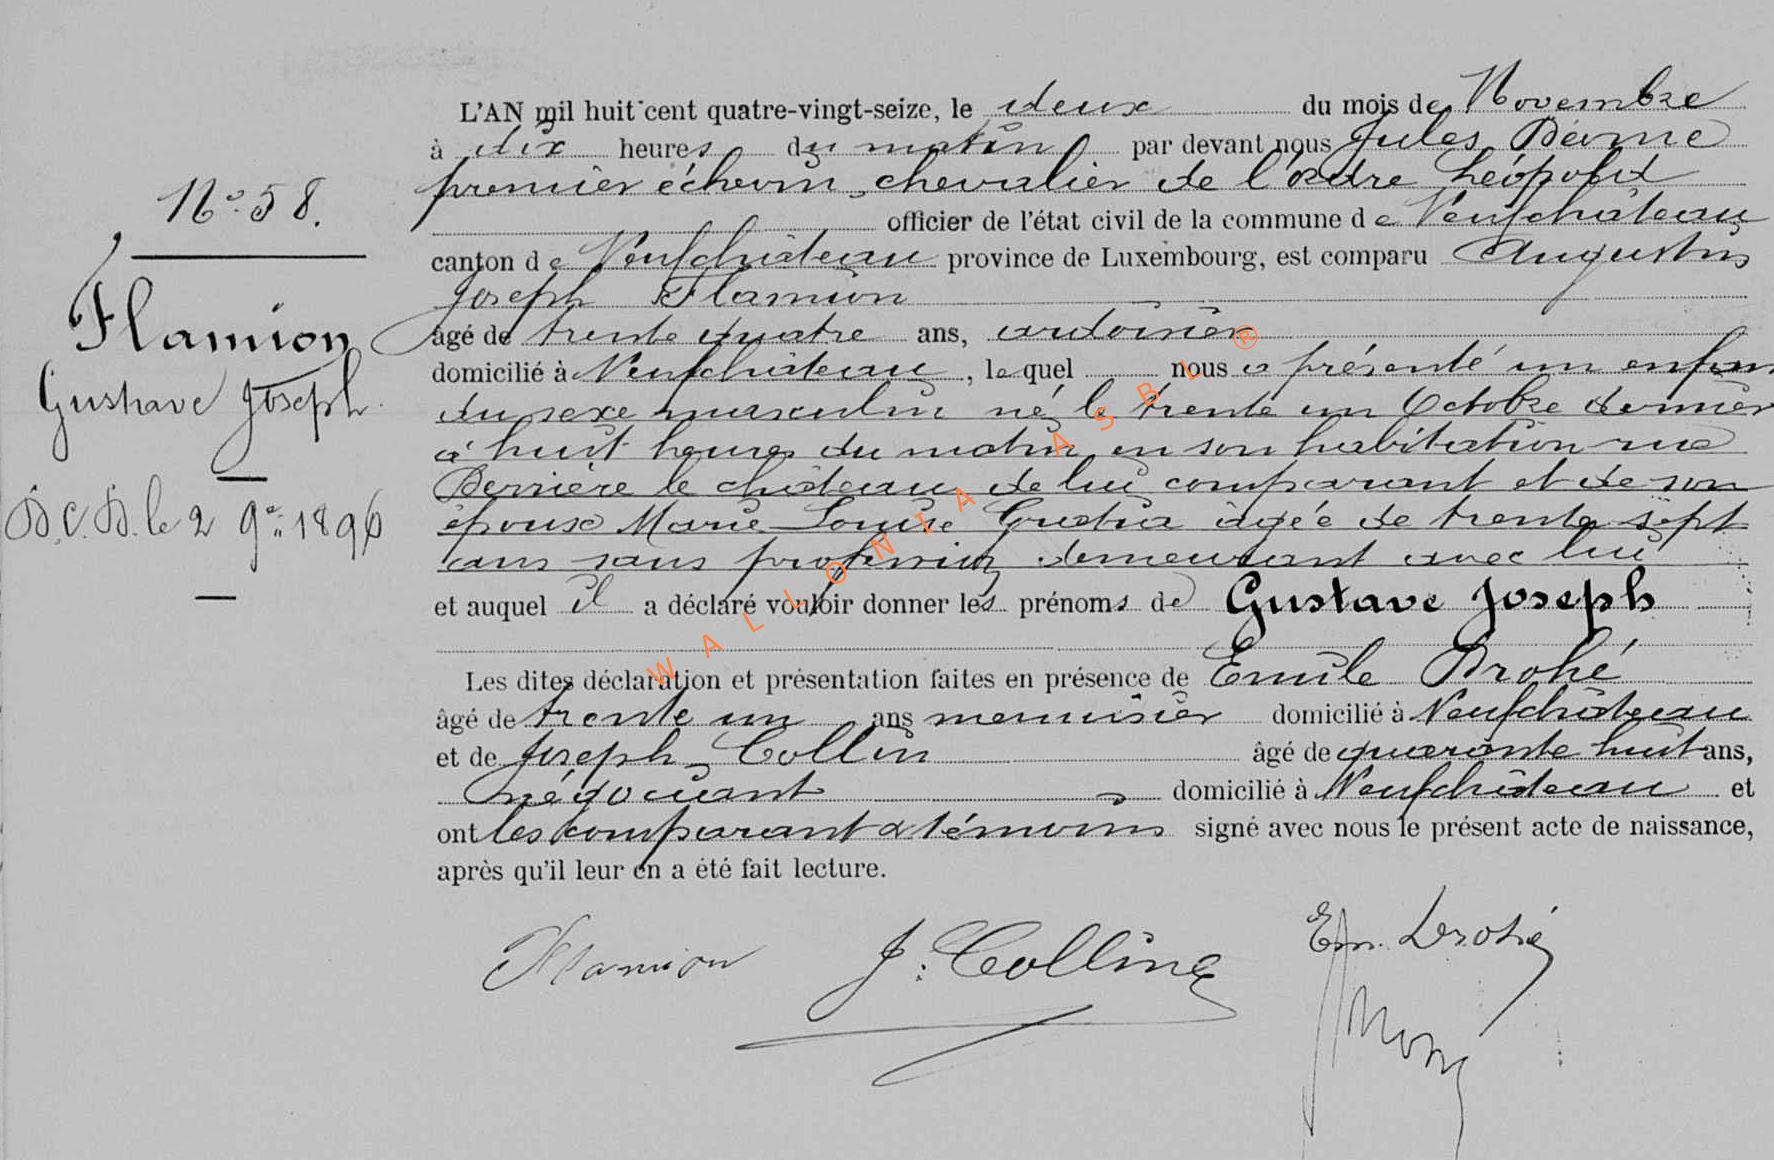 N° 58.
Flamion
Gustave Joseph
D.C.D. le 2 9re 1896
L'AN mil huit cent quatre-vingt-seize, le deux du mois de Novembre
à dix heures du matin par devant nous Jules
premier échevin, chevalier de l'ordre Léopold
officier de l'état civil de la commune de Neufchâteau
canton de Neufchâteau province de Luxembourg, est comparu Augustin
Joseph Flamion
âgé de trente quatre ans, ardoisier
domicilié à Neufchâteau, lequel nous a présenté un enfant
du sexe masculin né le trente un Octobre dernier
à huit heures du matin en son habitation rue
Derrière le château de lui comparant et de son
épouse Marie-Louise âgée de trente sept
ans sans profession demeurant avec lui
et auquel il a déclaré vouloir donner les prénoms de Gustave Joseph
Les dites déclaration et présentation faites en présence de Emile Drohé
âgé de trente un ans menuisier domicilié à Neufchâteau
et de Joseph Collin âgé de quarante huit ans,
négociant domicilié à Neufchâteau et
ont les comparant & témoins signé avec nous le présent acte de naissance,
après qu'il leur en a été fait lecture.
Flamion J. Colling Em. Drohé
WALLONIA ASBL ®